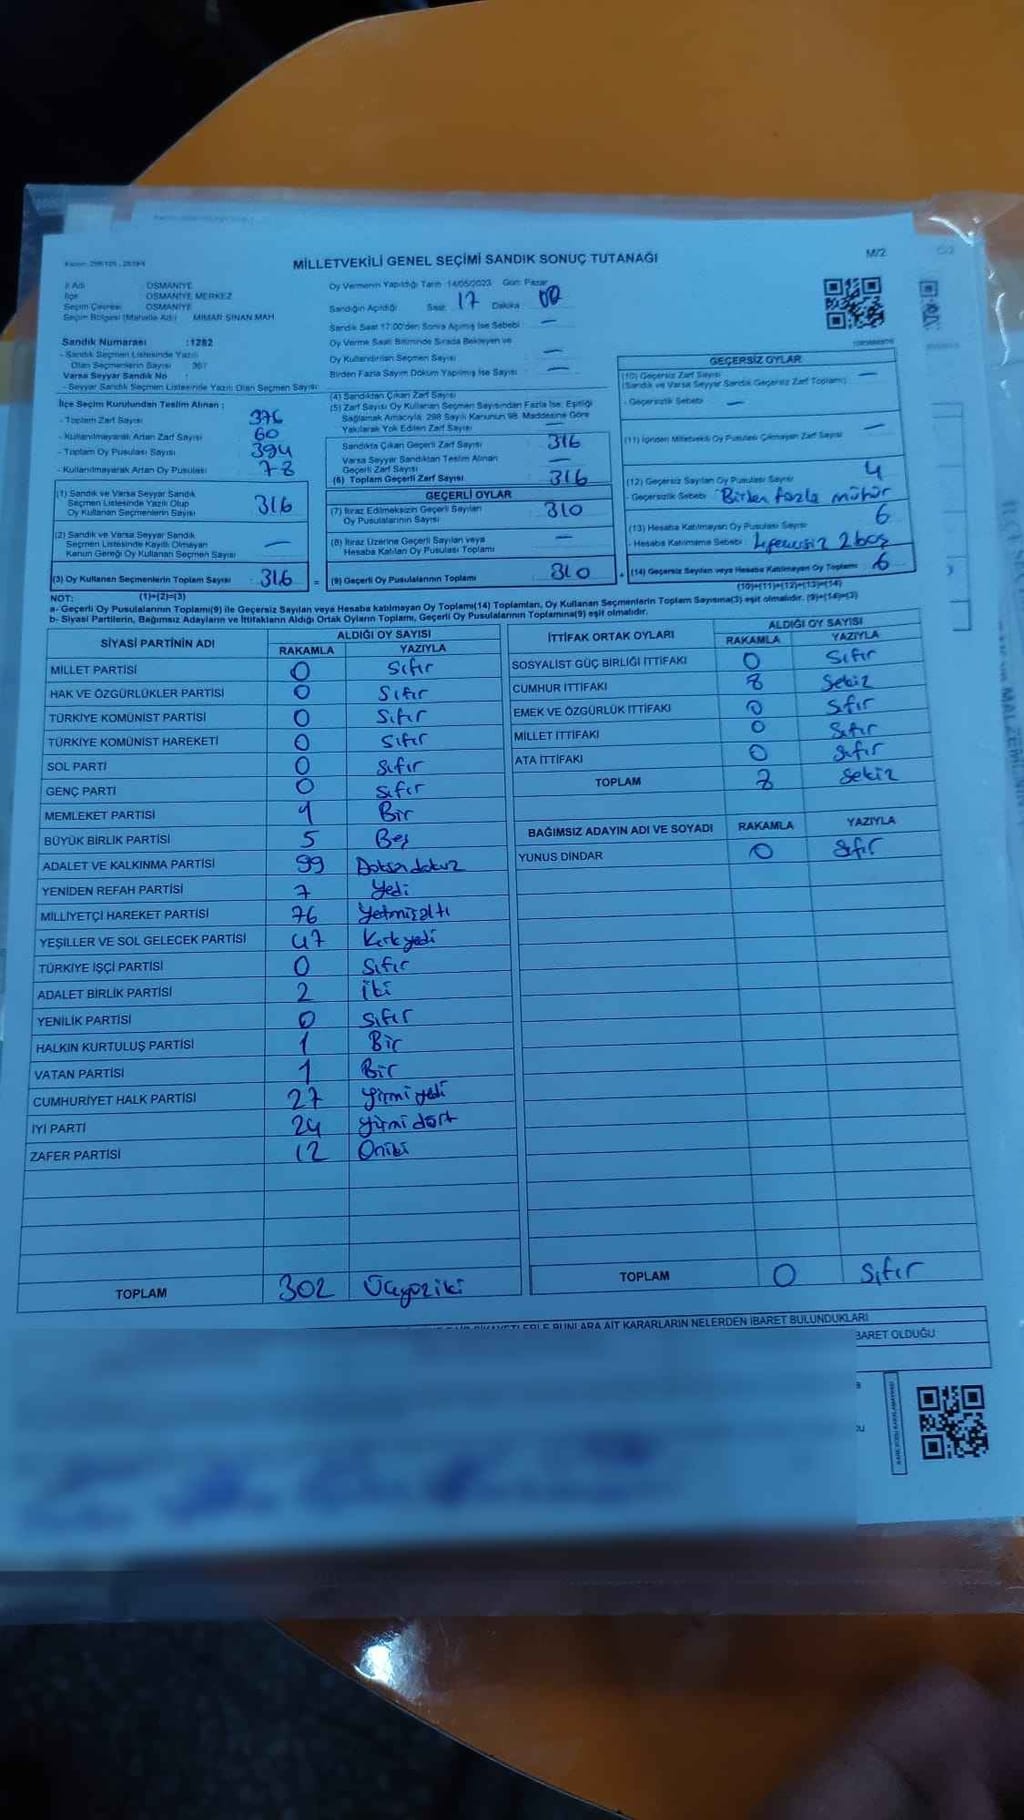 MİLLETVEKİLİ GENEL SEÇİMİ SANDIK SONUÇ TUTANAĞI
M/2
İl Adı OSMANİYE
İlçe OSMANİYE MERKEZ
Seçim Çevresi OSMANİYE
Seçim Bölgesi (Mahalle Adı) MİMAR SİNAN MAH.
Oy Vermenin Yapıldığı Tarih 14/05/2023 Gün: Pazar
Sandığın Açıldığı Saat 17 Dakika 00
Sandık Saat 17:00'den Sonra Açılmış İse Sebebi —
Oy Verme Saati Bitiminde Sırada Bekleyen ve
Oy Kullandırılan Seçmen Sayısı —
Birden Fazla Sayım Döküm Yapılmış İse Sayısı —
Sandık Numarası :1282
- Sandık Seçmen Listesinde Yazılı
Olan Seçmenlerin Sayısı
Varsa Seyyar Sandık No
- Seyyar Sandık Seçmen Listesinde Yazılı Olan Seçmen Sayısı:
İlçe Seçim Kurulundan Teslim Alınan :
- Toplam Zarf Sayısı 376
- Kullanılmayarak Artan Zarf Sayısı 60
- Toplam Oy Pusulası Sayısı 394
- Kullanılmayarak Artan Oy Pusulası 78
(1) Sandık ve Varsa Seyyar Sandık
Seçmen Listesinde Yazılı Olup
Oy Kullanan Seçmenlerin Sayısı 316
(2) Sandık ve Varsa Seyyar Sandık
Seçmen Listesinde Kayıtlı Olmayan
Kanun Gereği Oy Kullanan Seçmen Sayısı —
(3) Oy Kullanan Seçmenlerin Toplam Sayısı 316 =
(1)+(2)=(3)
(4) Sandıktan Çıkan Zarf Sayısı
(5) Zarf Sayısı Oy Kullanan Seçmen Sayısından Fazla İse, Eşitliği
Sağlamak Amacıyla, 298 Sayılı Kanunun 98. Maddesine Göre
Yakılarak Yok Edilen Zarf Sayısı —
Sandıkta Çıkan Geçerli Zarf Sayısı 316
Varsa Seyyar Sandıktan Teslim Alınan
Geçerli Zarf Sayısı —
(6) Toplam Geçerli Zarf Sayısı 316
GEÇERLİ OYLAR
(7) İtiraz Edilmeksizin Geçerli Sayılan
Oy Pusulalarının Sayısı 310
(8) İtiraz Üzerine Geçerli Sayılan veya
Hesaba Katılan Oy Pusulası Toplamı —
(9) Geçerli Oy Pusulalarının Toplamı 310 +
GEÇERSİZ OYLAR
(10) Geçersiz Zarf Sayısı —
(Sandık ve Varsa Seyyar Sandık Geçersiz Zarf Toplamı)
- Geçersizlik Sebebi —
(11) İçinden Milletvekili Oy Pusulası Çıkmayan Zarf Sayısı —
(12) Geçersiz Sayılan Oy Pusulası Sayısı 4
- Geçersizlik Sebebi Birden fazla mühür
(13) Hesaba Katılmayan Oy Pusulası Sayısı 6
- Hesaba Katılmama Sebebi 2 boş
(14) Geçersiz Sayılan veya Hesaba Katılmayan Oy Toplamı 6
(10)+(11)+(12)+(13)=(14)
NOT:
a- Geçerli Oy Pusulaları Toplamı(9) ile Geçersiz Sayılan veya Hesaba katılmayan Oy Toplamı(14) Toplamları, Oy Kullanan Seçmenlerin Toplam Sayısına(3) eşit olmalıdır. (9)+(14)=(3)
b- Siyasi Partilerin, Bağımsız Adayların ve İttifakların Aldığı Ortak Oyların Toplamı, Geçerli Oy Pusulalarının Toplamına(9) eşit olmalıdır.
SİYASİ PARTİNİN ADI ALDIĞI OY SAYISI
RAKAMLA YAZIYLA
MİLLET PARTİSİ 0 Sıfır
HAK VE ÖZGÜRLÜKLER PARTİSİ 0 Sıfır
TÜRKİYE KOMÜNİST PARTİSİ 0 Sıfır
TÜRKİYE KOMÜNİST HAREKETİ 0 Sıfır
SOL PARTİ 0 Sıfır
GENÇ PARTİ 0 Sıfır
MEMLEKET PARTİSİ 1 Bir
BÜYÜK BİRLİK PARTİSİ 5 Beş
ADALET VE KALKINMA PARTİSİ 99 Doksandokuz
YENİDEN REFAH PARTİSİ 7 Yedi
MİLLİYETÇİ HAREKET PARTİSİ 76 Yetmişaltı
YEŞİLLER VE SOL GELECEK PARTİSİ 47 Kırkyedi
TÜRKİYE İŞÇİ PARTİSİ 0 Sıfır
ADALET BİRLİK PARTİSİ 2 İki
YENİLİK PARTİSİ 0 Sıfır
HALKIN KURTULUŞ PARTİSİ 1 Bir
VATAN PARTİSİ 1 Bir
CUMHURİYET HALK PARTİSİ 27 Yirmiyedi
İYİ PARTİ 24 Yirmi dört
ZAFER PARTİSİ 12 Oniki
TOPLAM 302 Üçyüziki
İTTİFAK ORTAK OYLARI ALDIĞI OY SAYISI
RAKAMLA YAZIYLA
SOSYALİST GÜÇ BİRLİĞİ İTTİFAKI 0 Sıfır
CUMHUR İTTİFAKI 8 Sekiz
EMEK VE ÖZGÜRLÜK İTTİFAKI 0 Sıfır
MİLLET İTTİFAKI 0 Sıfır
ATA İTTİFAKI 0 Sıfır
TOPLAM 8 Sekiz
BAĞIMSIZ ADAYIN ADI VE SOYADI RAKAMLA YAZIYLA
YUNUS DİNDAR 0 Sıfır
TOPLAM 0 Sıfır
BUNLARA AİT KARARLARIN NELERDEN İBARET BULUNDUKLARI
BARET OLDUĞU